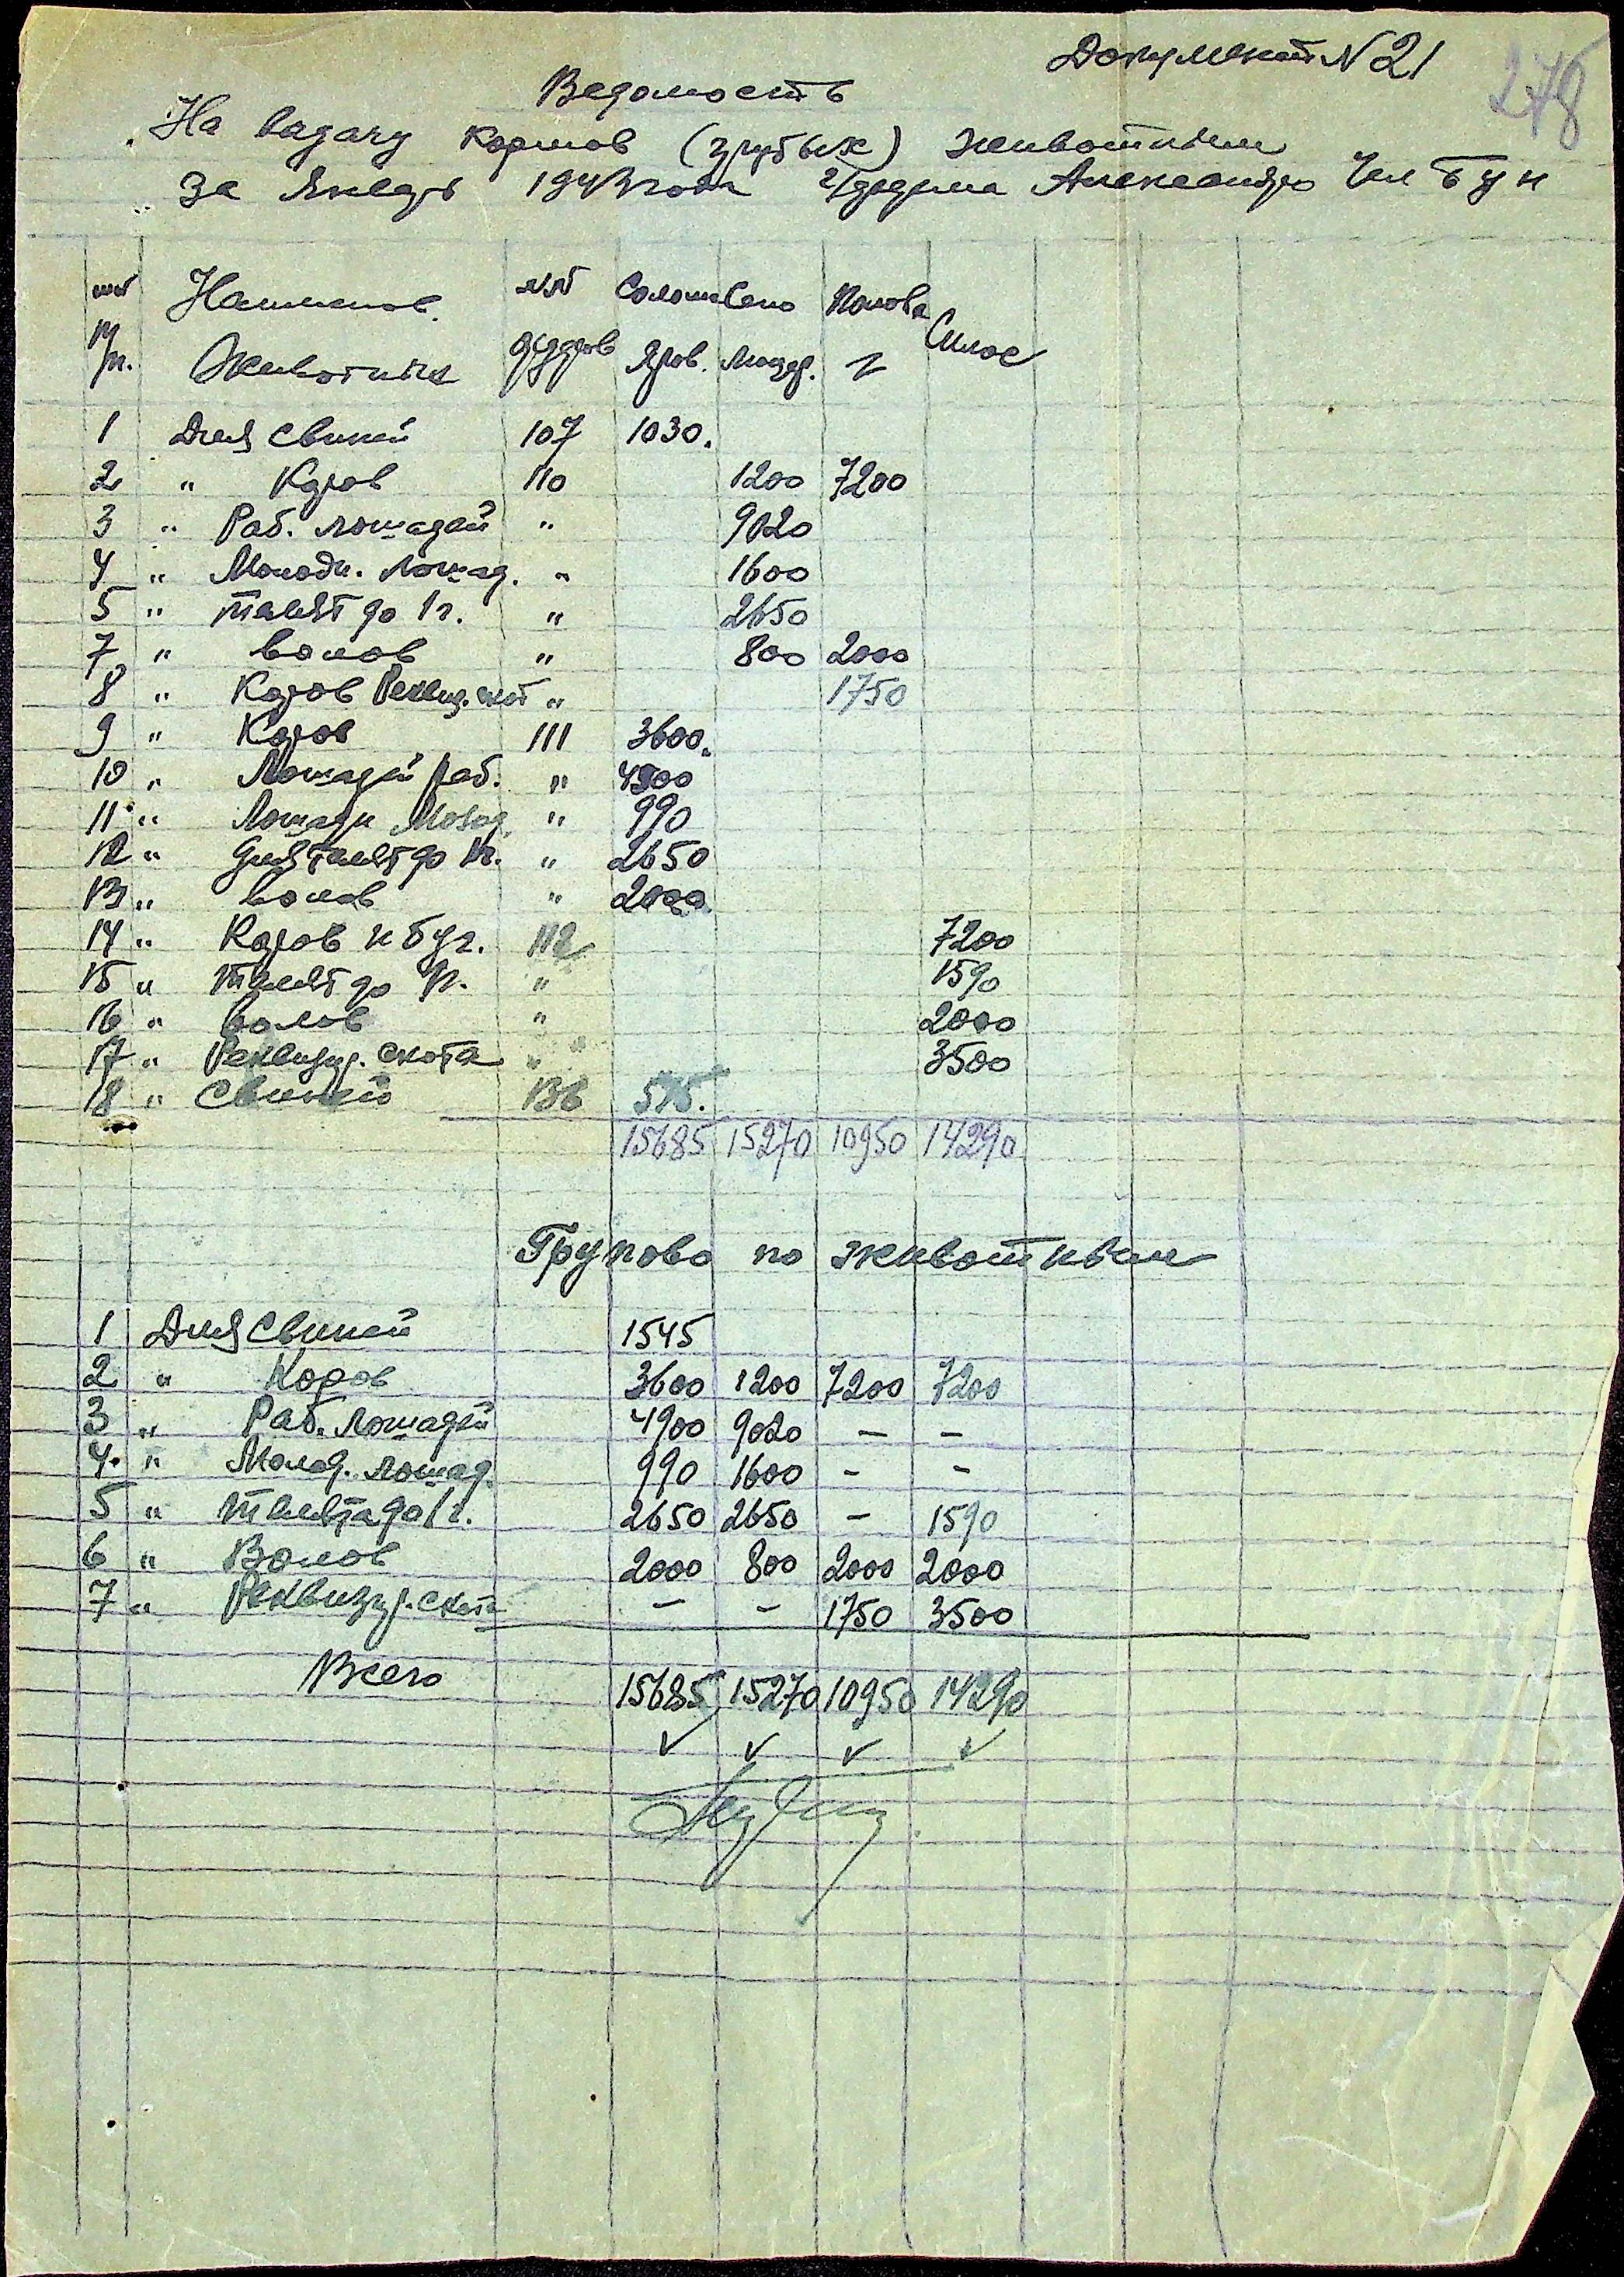 Документ N 21
278
Ведомость
На видачу кормов (грубых) животным
за Январь 1943 года Александро
NN Наименов. NN Солома Сено Полова Силос
п/п. Животных Яров. Люцер. "
1 Для свиней 107 1030.
2 " Коров 110 1200 7200
3 " Раб. лошадей " 9020
4 " Молодн. лошад. " 1600
5 " телят до 1 г. " 2650
7 " волов " 800 2000
8 " Коров Реквиз. скот " 1750
9 " Коров 111 3600.
10 " Лошадей раб. " 4900
11 " Лошади Молод. " 990
12 " для телят до 1г. " 2650
13 " волов " 2000.
14 " Коров и буг. 112 7200
15 " телят до 1г. " 1590
16 " волов " 2000
17 " Реквизир. скота " 3500
18 " Свиней 136 515.
15685 15270 10950 14290
Групово по животным
1 Для свиней 1545
2 " Коров 3600 1200 7200 7200
3 " Раб. лошадей 4900 9020 - -
4. " Молод. лошад. 990 1600 - -
5 " телята до 1 г. 2650 2650 - 1590
6 " Волов 2000 800 2000 2000
7 " Реквизир. скота - - 1750 3500
Всего 15685 15270 10950 14290